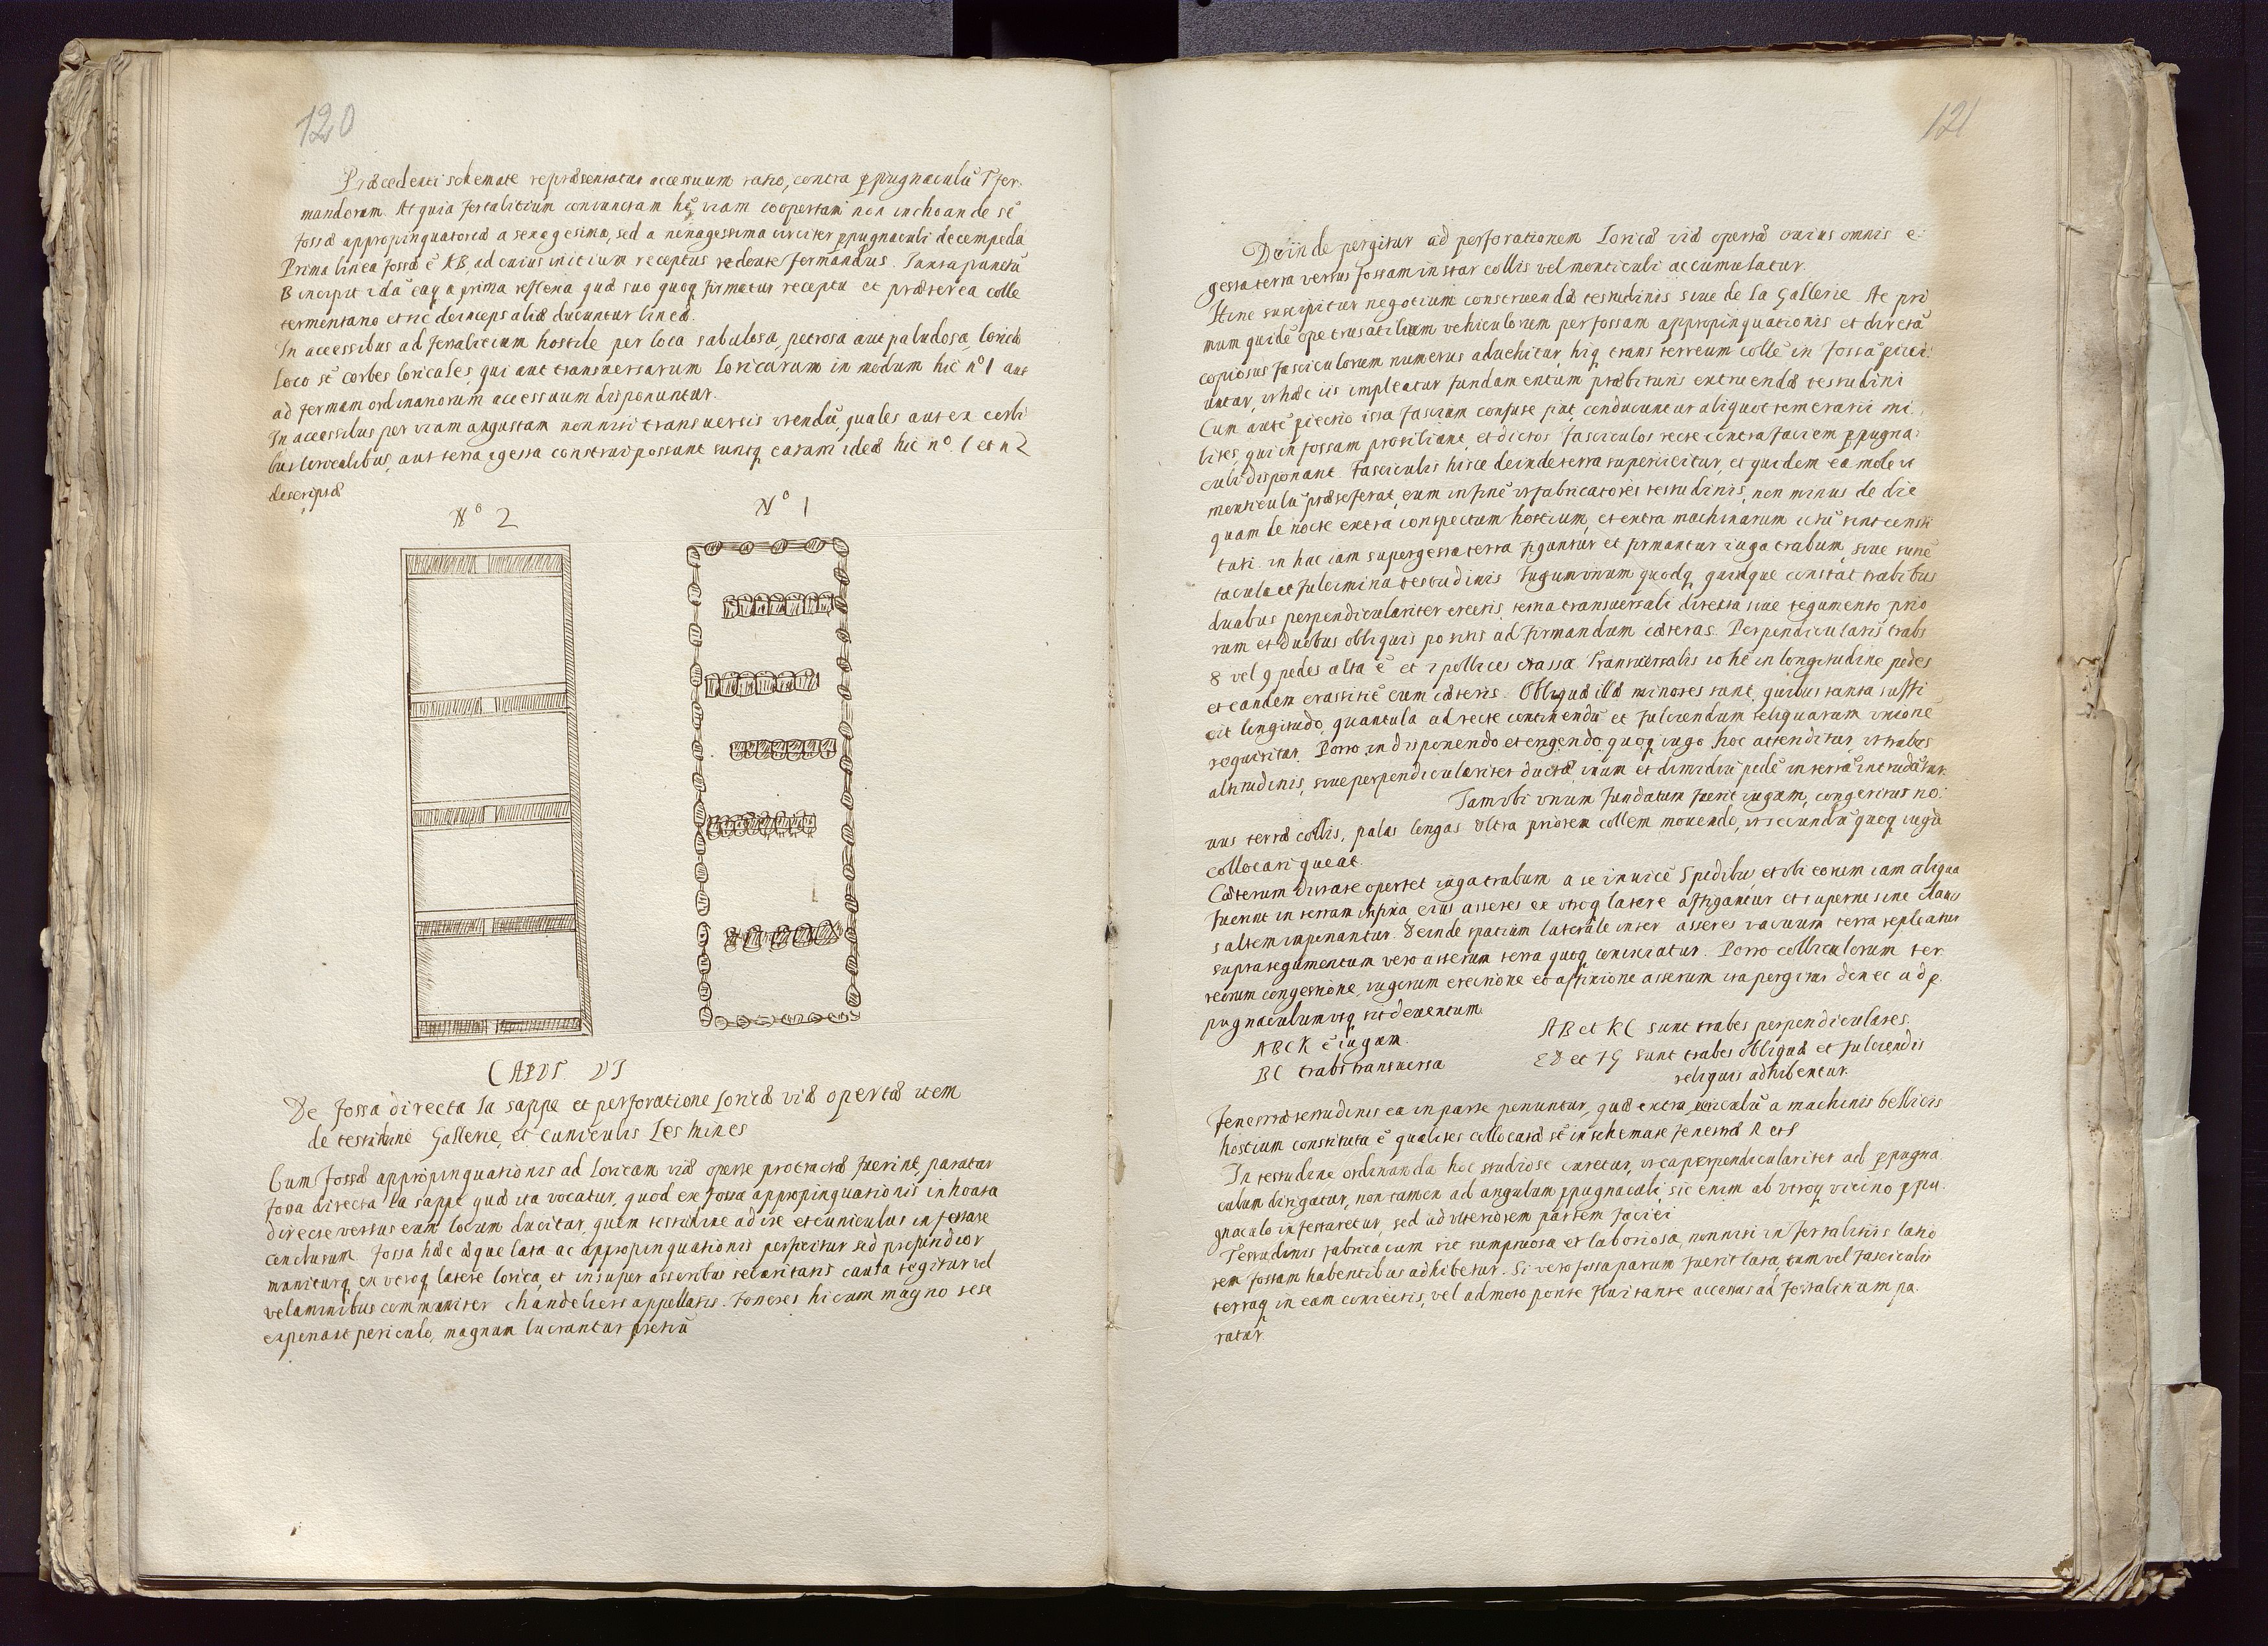 120
Præcedenti schemate repræsentatur accessuum ratio, contra ꝓpugnaculũ
mandorum. At quia fortalitium coniunctam hẽ viam coopertam non inchoandæ sẽ
fossæ appropinquatoriæ a sexagesima, sed a nonagessima circiter ꝓpugnaculi decempeda
Prima linea fossæ ẽ AB, ad cuius initium receptus formandus. Iuxta punctũ
B incipit a prima reflexa quæ suo quoq firmatur receptu et præterea colle
termentano et sic deinceps aliæ ducuntur lineæ.
In accessibus ad fortalitium hostile per loca sabulosa, petrosa aut paludosa, loricæ
loco sẽ corbes loricales, qui aut transversarum loricarum in modum hic nº 1 aut
ad formam ordinariorum accessuum disponuntur.
In accessibus per viam angustam non nisi transversis vtendũ, quales aut ex corbi
bus loricalibus, aut terra egesta construi possunt suntq earum ideæ hic nº. 1 et n 2
descriptæ
Nº 2
Nº 1
CAPVT VI
De fossa directa la sappe et perforatione loricæ viæ opertæ item
de testudine Gallerie, et cuniculis Les mines
Cum fossæ appropinquationis ad loricam viæ operte protractæ fuerint, paratur
fossa directa la sappe quæ ita vocatur, quod ex fossa appropinquationis inhoata
directe versus eum locum ducitur, quem testudine adire et cuniculus infestare
conclusum. fossa hæc æque lata ac appropinquationis perficitur sed profundior
muniturq ex vtroq latere lorica, et insuper asseribus securitatis causa tegitur vel
velaminibus communiter chandeliers appellatis. fossores hi cum magno sese
exponant periculo, magnum lucrantur pretiũ
121
Deinde pergitur ad perforationem Loricæ viæ opertæ cuius omnis e:
gesta terra versus fossam instar collis vel monticuli accumulatur.
Hinc suscipitur negotium construendæ testudinis siue de la Gallerie At pri
mum quidẽ ope trusatilium vehiculorum per fossam appropinquationis et directã
copiosus fasciculorum numerus aduehitur, hiq trans terreum collẽ in fossã piici:
untur, vt hæc iis impleatur fundamentum præbituris extruendæ testudini
Cum autẽ piectio ista fascium confuse fiat, conducuntur aliquot temerarii mi:
lites, qui in fossam prosiliant, et dictos fasciculos recte contra faciem ꝓpugna:
culi disponant fasciculis hisce deinde terra supericitur, et quidem ea mole vt
monticulũ præseferat, eum in finẽ vt fabricatores testudinis, non minus de die
quam de nocte extra conspectum hostium, et extra machinarum ictũ sint consti
tuti. in hac iam supergesta terra figuntur et firmantur iuga trabum, siue
tacula et fulcimina testudinis Iugum vnum quodq, quinque constat trabibus
duabus perpendiculariter erectis, terna transuersali directa siue tegumento prio
rum et duobus obliquis positis ad firmandum cæteras. Perpendicularis trabs
8 vel 9 pedes alta ẽ et 7 pollices crassa Transuersalis 10 hẽ in longitudine pedes
et eandem crassitiẽ cum cæteris. Obliquæ illæ minores sunt, quibus tanta suffi
cit longitudo, quantula ad recte continendũ et fulciendum reliquarum vnionẽ
requiritur. Porro in disponendo et erigendo quoq iugo hoc attenditur, vt trabes
altitudinis, siue perpendiculariter ductæ, vnum et dimidiũ pedẽ in terrã intrudãtur.
Iam vbi vnum fundatum fuerit iugum, congeritur no:
uus terræ collis, palas longas vltra priorem collem mouendo, vt secundũ quoq iugũ
collocari queat.
Cæterum distare oportet iuga trabum a se inuicẽ 5 pedibus, et vbi eorum iam aliqua
fuerint in terram infixa, eius asseres ex vtroq latere affigantur et superne sine clauis
saltem imponantur. Deinde spatium laterale inter asseres vacuum terra repleatur
supra tegumentum vero asserum terra quoq coniiciatur. Porro colliculorum ter
reorum congestione, iugorum erectione et affixione asserum ita pergitur donec ad ꝓ
pugnaculum vsq sit deuentum
ABCK ẽ iugum.
BC trabs transuersa
AB et KC sunt trabes perpendiculares.
ED et FG sunt trabes obliquæ et fulciendis
reliquis adhibentur.
Fenestræ testudinis ea in parte ponuntur, quæ extra a machinis bellicis
hostium constituta ẽ qualiter collocatæ sẽ in schemate fenestræ R et S
In testudine ordinanda hoc studiose curetur, vt ea perpendiculariter ad ꝓpugna
culum dirigatur, non tamen ad angulum ꝓpugnaculi, sic enim ab vtroq vicino ꝓpu:
gnaculo infestaretur, sed ad vlteriorem partem faciei
Testudinis fabricacum sit sumptuosa et laboriosa, non nisi in fortalitiis latio
rem fossam habentibus adhibetur. Si vero fossa parum fuerit lata, tum vel fasciculis
terraq in eam coniectis, vel admoto ponte fluitante accessus ad fortalitium pa:
ratur.